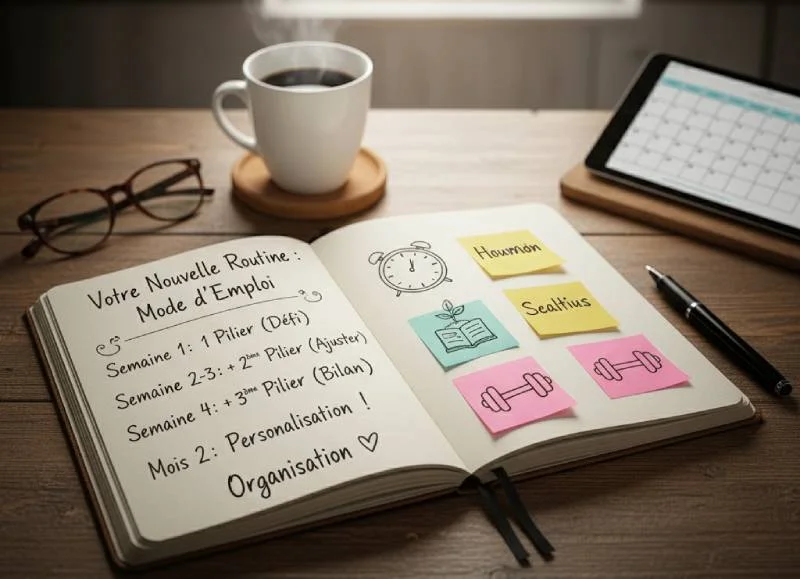 Votre Nouvelle Routine:
Mode d'Emploi
Semaine 1: 1 Pilier (Défi)
Semaine 2-3: + 2ème Pilier (Ajuster)
Semaine 4: + 3ème Pilier (Bilan)
Mois 2: Personalisation !
Organisation ♡
Houmán
Sealtius